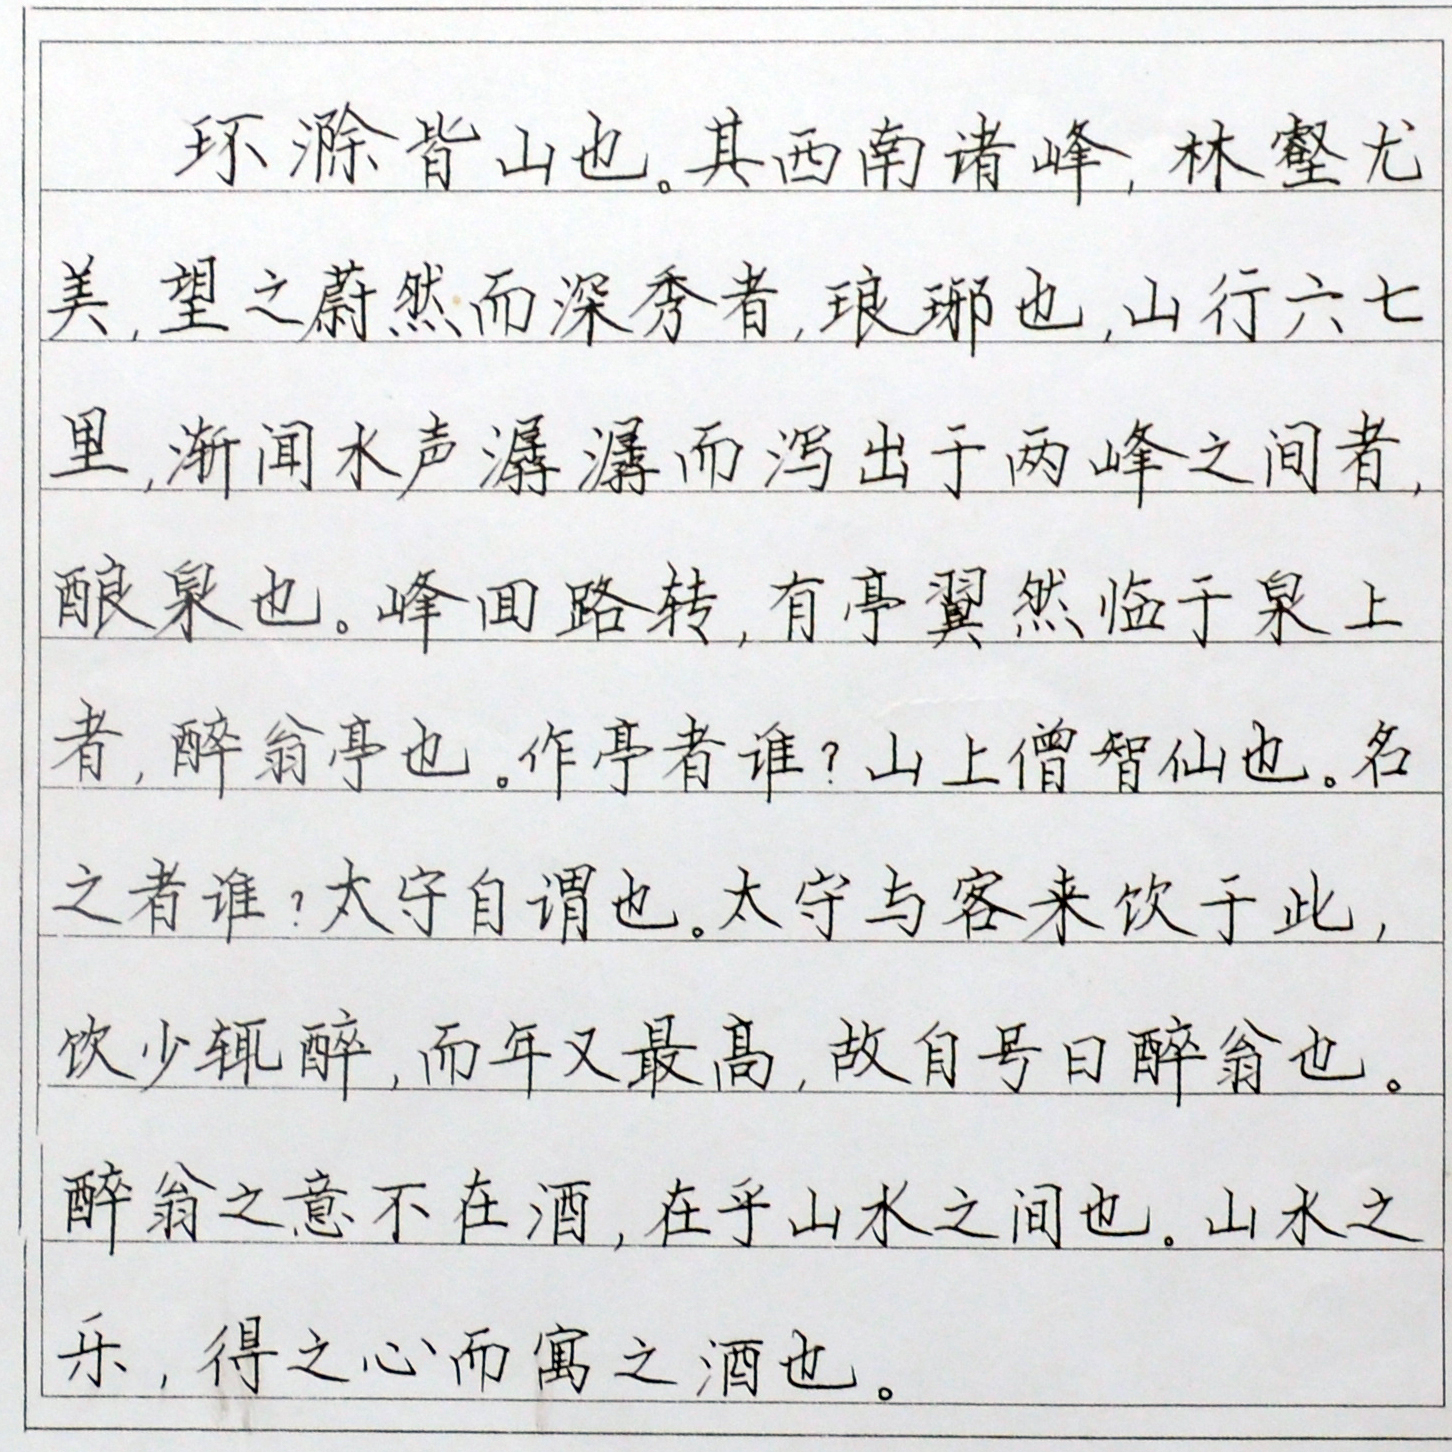 环滁皆山也。其西南诸峰,林壑尤
美,望之蔚然而深秀者,琅琊也,山行六七
里,渐闻水声潺潺而泻出于两峰之间者,
酿泉也。峰回路转,有亭翼然临于泉上
者,醉翁亭也。作亭者谁?山上僧智仙也。名
之者谁?太守自谓也。太守与客来饮于此,
饮少辄醉,而年又最高,故自号曰醉翁也。
醉翁之意不在酒,在乎山水之间也。山水之
乐,得之心而寓之酒也。